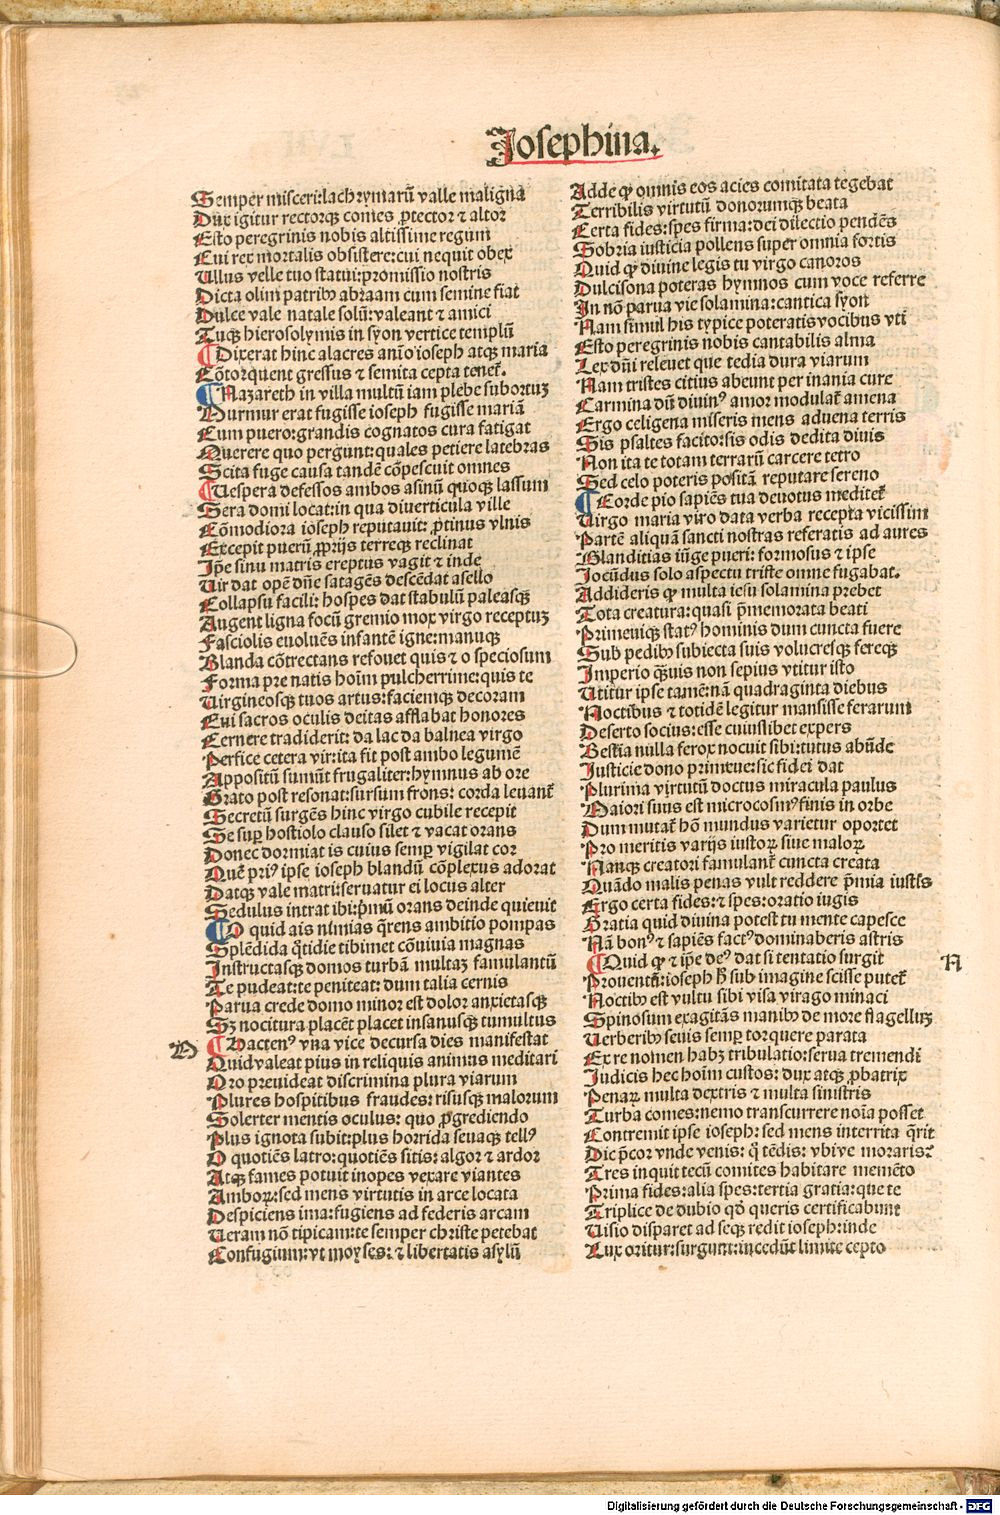 Josephina.
Semper misceri:lachrymarū valle maligna
Dux igitur rectorqꝫ comes ꝓtector ⁊ altor
Esto peregrinis nobis altissime regum
Cui rex mortalis obsistere:cui nequit obex
Ullus velle tuo statui:promissio nostris
Dicta olim patribꝰ abraam cum semine fiat
Dulce vale natale solū:valeant ⁊ amici
Tuqꝫ hierosolymis in syon vertice templū
¶ Dixerat hinc alacres anīo ioseph atqꝫ maria
Cōtorquent gressus ⁊ semita cepta tenet̄.
¶ Nazareth in villa multū iam plebe subortuꝫ
Murmur erat fugisse ioseph fugisse mariā
Cum puero:grandis cognatos cura fatigat
Querere quo pergunt:quales petiere latebras
Scita fuge causa tandē cōpescuit omnes
¶ Vespera defessos ambos asinū quoqꝫ lassum
Sera domi locat:in qua diverticula ville
Cōmodiora ioseph reputauit: ꝓtinus vlnis
Excepit puerū ꝓprijs terreqꝫ reclinat
Ip̄e sinu matris ereptus vagit ⁊ inde
Vir dat opē dn̄e satagēs descēdat asello
Collapsu facili: hospes dat stabulū paleasqꝫ
Augent ligna focū gremio mox virgo receptuꝫ
Fasciolis euoluēs infantē igne:manuqꝫ
Blanda cōtrectans refouet quis ⁊ o speciosum
Forma pre natis hoīm pulcherrime:quis te
Virgineosqꝫ tuos artus:faciemqꝫ decoram
Cui sacros oculis deitas afflabat honores
Cernere tradiderit: da lac da balnea virgo
Perfice cetera vir:ita fit post ambo legumē
Appositū sumūt frugaliter:hymnus ab ore
Grato post resonat:sursum frons: corda leuant̄
Secretū surgēs hinc virgo cubile recepit
Se suꝑ hostiolo clauso silet ⁊ vacat orans
Donec dormiat is cuius semꝑ vigilat cor
Quē priꝰ ipse ioseph blandū cōplexus adorat
Datqꝫ vale matri:seruatur ei locus alter
Sedulus intrat ibi:p̄mū orans deinde quieuit
¶ O quid ais nimias q̄rens ambitio pompas
Splēdida q̄tidie tibimet cōuiuia magnas
Instructasqꝫ domos turbā multaꝫ famulantū
Te pudeat:te peniteat: dum talia cernis
Parua crede domo minor est dolor anxietasqꝫ
Sꝫ nocitura placēt placet insanusqꝫ tumultus
D
¶ Hactenꝰ vna vice decursa dies manifestat
Quid valeat pius in reliquis animus meditari
Oro preuideat discrimina plura viarum
Plures hospitibus fraudes: risusqꝫ malorum
Solerter mentis oculus: quo ꝓgrediendo
Plus ignota subit:plus horrida seuaqꝫ tellꝰ
O quotiēs latro:quotiēs sitis: algor ⁊ ardor
Atqꝫ fames potuit inopes vexare viantes
Amboꝝ:sed mens virtutis in arce locata
Despiciens ima:fugiens ad federis arcam
Veram nō tipicam:te semper christe petebat
Confugium:vt moyses: ⁊ libertatis asylū
Adde ꝙ omnis eos acies comitata tegebat
Terribilis virtutū donorumqꝫ beata
Certa fides:spes firma:dei dilectio pendēs
Sobria iusticia pollens super omnia fortis
Quid ꝙ diuine legis tu virgo canoros
Dulcisona poteras hymnos cum voce referre
In nō parua vie solamina:cantica syon
Nam simul his typice poteratis vocibus vti
Esto peregrinis nobis cantabilis alma
Lex dn̄i releuet que tedia dura viarum
Nam tristes citius abeunt per inania cure
Carmina dū diuinꝰ amor modulat̄ amena
Ergo celigena miseris mens aduena terris
Sis psaltes facito:sis odis dedita diuis
Non ita te totam terrarū carcere tetro
Sed celo poteris positā reputare sereno
¶ Corde pio sapiēs tua deuotus meditet̄
Virgo maria viro data verba recepta vicissim
Partē aliquā sancti nostras referatis ad aures
Blanditias iūge pueri: formosus ⁊ ipse
Jocūdus solo aspectu triste omne fugabat.
Addideris ꝙ multa iesu solamina prebet
Tota creatura:quasi p̄memorata beati
Primeuiqꝫ statꝰ hominis dum cuncta fuere
Sub pedibꝰ subiecta suis volucresqꝫ fereqꝫ
Imperio q̄uis non sepius vtitur isto
Utitur ipse tamē:nā quadraginta diebus
Noctibus ⁊ totidē legitur mansisse ferarum
Deserto socius:esse cuiuslibet expers
Bestia nulla ferox nocuit sibi:tutus abūde
Justicie dono primeue:sic fidei dat
Plurima virtutū doctus miracula paulus
Maiori suus est microcosmꝰ finis in orbe
Dum mutat̄ hō mundus varietur oportet
Pro meritis varijs iustoꝝ siue maloꝝ
Nanqꝫ creatori famulant̄ cuncta creata
Quādo malis penas vult reddere p̄mia iustis
Ergo certa fides:⁊ spes:oratio iugis
Gratia quid diuina potest tu mente capesce
Nā bonꝰ ⁊ sapiēs factꝰ dominaberis astris
N
¶ Quid ꝙ ⁊ ip̄e deꝰ dat si tentatio surgit
Prouentū:ioseph hͦ sub imagine scisse putet̄
Noctibꝰ est vultu sibi visa virago minaci
Spinosum exagitās manibꝰ de more flagelluꝫ
Verberibꝰ seuis semꝑ torquere parata
Ex re nomen habꝫ tribulatio:serua tremendi
Judicis hec hoīm custos: dux atqꝫ ꝓbatrix
Penaꝝ multa dextris ⁊ multa sinistris
Turba comes:nemo transcurrere noīa posset
Contremit ipse ioseph: sed mens interrita q̄rit
Dic p̄cor vnde venis: qͥ tēdis: vbiue moraris?
Tres inquit tecū comites habitare memēto
Prima fides:alia spes:tertia gratia:que te
Triplice de dubio qd̄ queris certificabunt
Visio disparet ad seqꝫ redit ioseph:inde
Lux oritur:surgunt:incedūt limite cepto
Digitalisierung gefördert durch die Deutsche Forschungsgemeinschaft - DFG